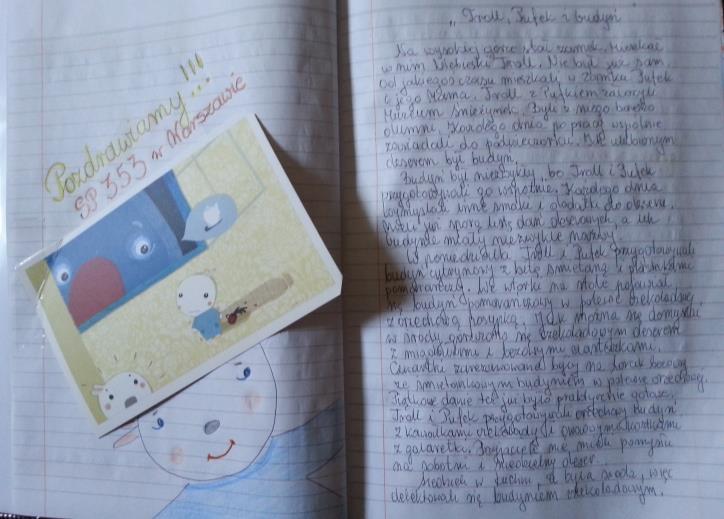 Pozdrawiamy!!!
SP 353 w Warszawie
„Troll, Pufek i budyń
Na wysokiej górce stał zamek. Mieszkał
w nim Niebieski Troll. Nie był sam,
od jakiegoś czasu mieszkali w zamku Pufek
i jego Mama. Troll z Pufkiem założyli
Muzeum Śnieżynek. Byli z niego bardzo
dumni. Każdego dnia po pracy wspólnie
zasiadali do podwieczorku. Ich ulubionym
deserem był budyń.
Budyń był niezwykły, bo Troll i Pufek
przygotowywali go wspólnie. Każdego dnia
wymyślali inne smaki i dodatki do deseru.
mieli już sporą listę dań deserowych, a ich
budynie miały niezwykłe nazwy.
W poniedziałki Troll i Pufek przygotowywali
budyń cytrynowy z bitą śmietaną i plasterkami
pomarańczy. We wtorki na stole pojawiał
się budyń pomarańczowy w polewie czekoladowej
z orzechową posypką. Jak można się domyślić
w środy gościło się czekoladowym deserem
z migdałami i bezowymi
Czwartki zarezerwowane były na
ze śmietankowym budyniem w polewie orzechowej.
Piątkowe danie też już było praktycznie gotowe.
Troll i Pufek przygotowywali orzechowy budyń
z kawałkami czekolady i owocowymi kostkami
z galaretki. Przyjaciele nie mieli pomysłu
na sobotni i niedzielny deser...
Siedzieli w kuchni, a była środa, więc
delektowali się budyniem czekoladowym.